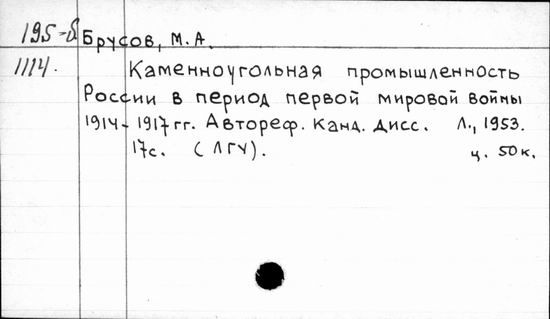 195-8 Брусов, М.А.
1114. Каменноугольная промышленность
России в период первой мировой войны
1914-1917 гг. Автореф. Канд. дисс. Л., 1953.
17с. (ЛГУ). ц. 50к.